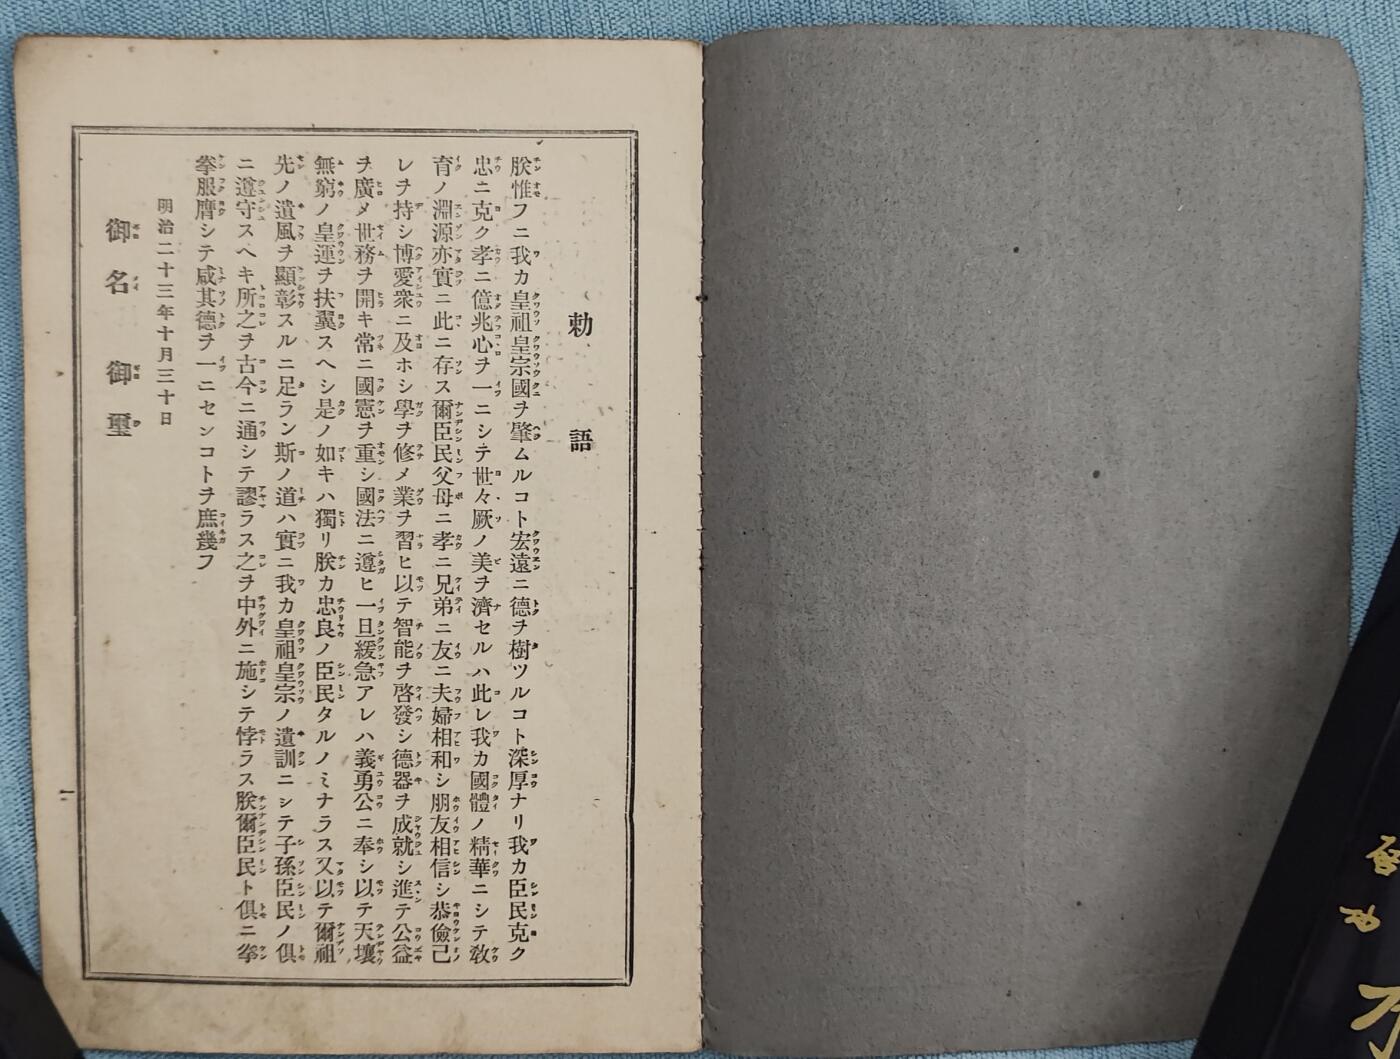 勅語
朕惟フニ我カ皇祖皇宗國ヲ肇ムルコト宏遠ニ德ヲ樹ツルコト深厚ナリ我カ臣民克ク
忠ニ克ク孝ニ億兆心ヲ一ニシテ世々厥ノ美ヲ濟セルハ此レ我カ國體ノ精華ニシテ敎
育ノ淵源亦實ニ此ニ存ス爾臣民父母ニ孝ニ兄弟ニ友ニ夫婦相和シ朋友相信シ恭儉己
レヲ持シ博愛衆ニ及ホシ學ヲ修メ業ヲ習ヒ以テ智能ヲ啓發シ德器ヲ成就シ進テ公益
ヲ廣メ世務ヲ開キ常ニ國憲ヲ重シ國法ニ遵ヒ一旦緩急アレハ義勇公ニ奉シ以テ天壤
無窮ノ皇運ヲ扶翼スヘシ是ノ如キハ獨リ朕カ忠良ノ臣民タルノミナラス又以テ爾祖
先ノ遺風ヲ顯彰スルニ足ラン斯ノ道ハ實ニ我カ皇祖皇宗ノ遺訓ニシテ子孫臣民ノ俱
ニ遵守スヘキ所之ヲ古今ニ通シテ謬ラス之ヲ中外ニ施シテ悖ラス朕爾臣民ト俱ニ拳
拳服膺シテ咸其德ヲ一ニセンコトヲ庶幾フ
明治二十三年十月三十日
御名御璽
一